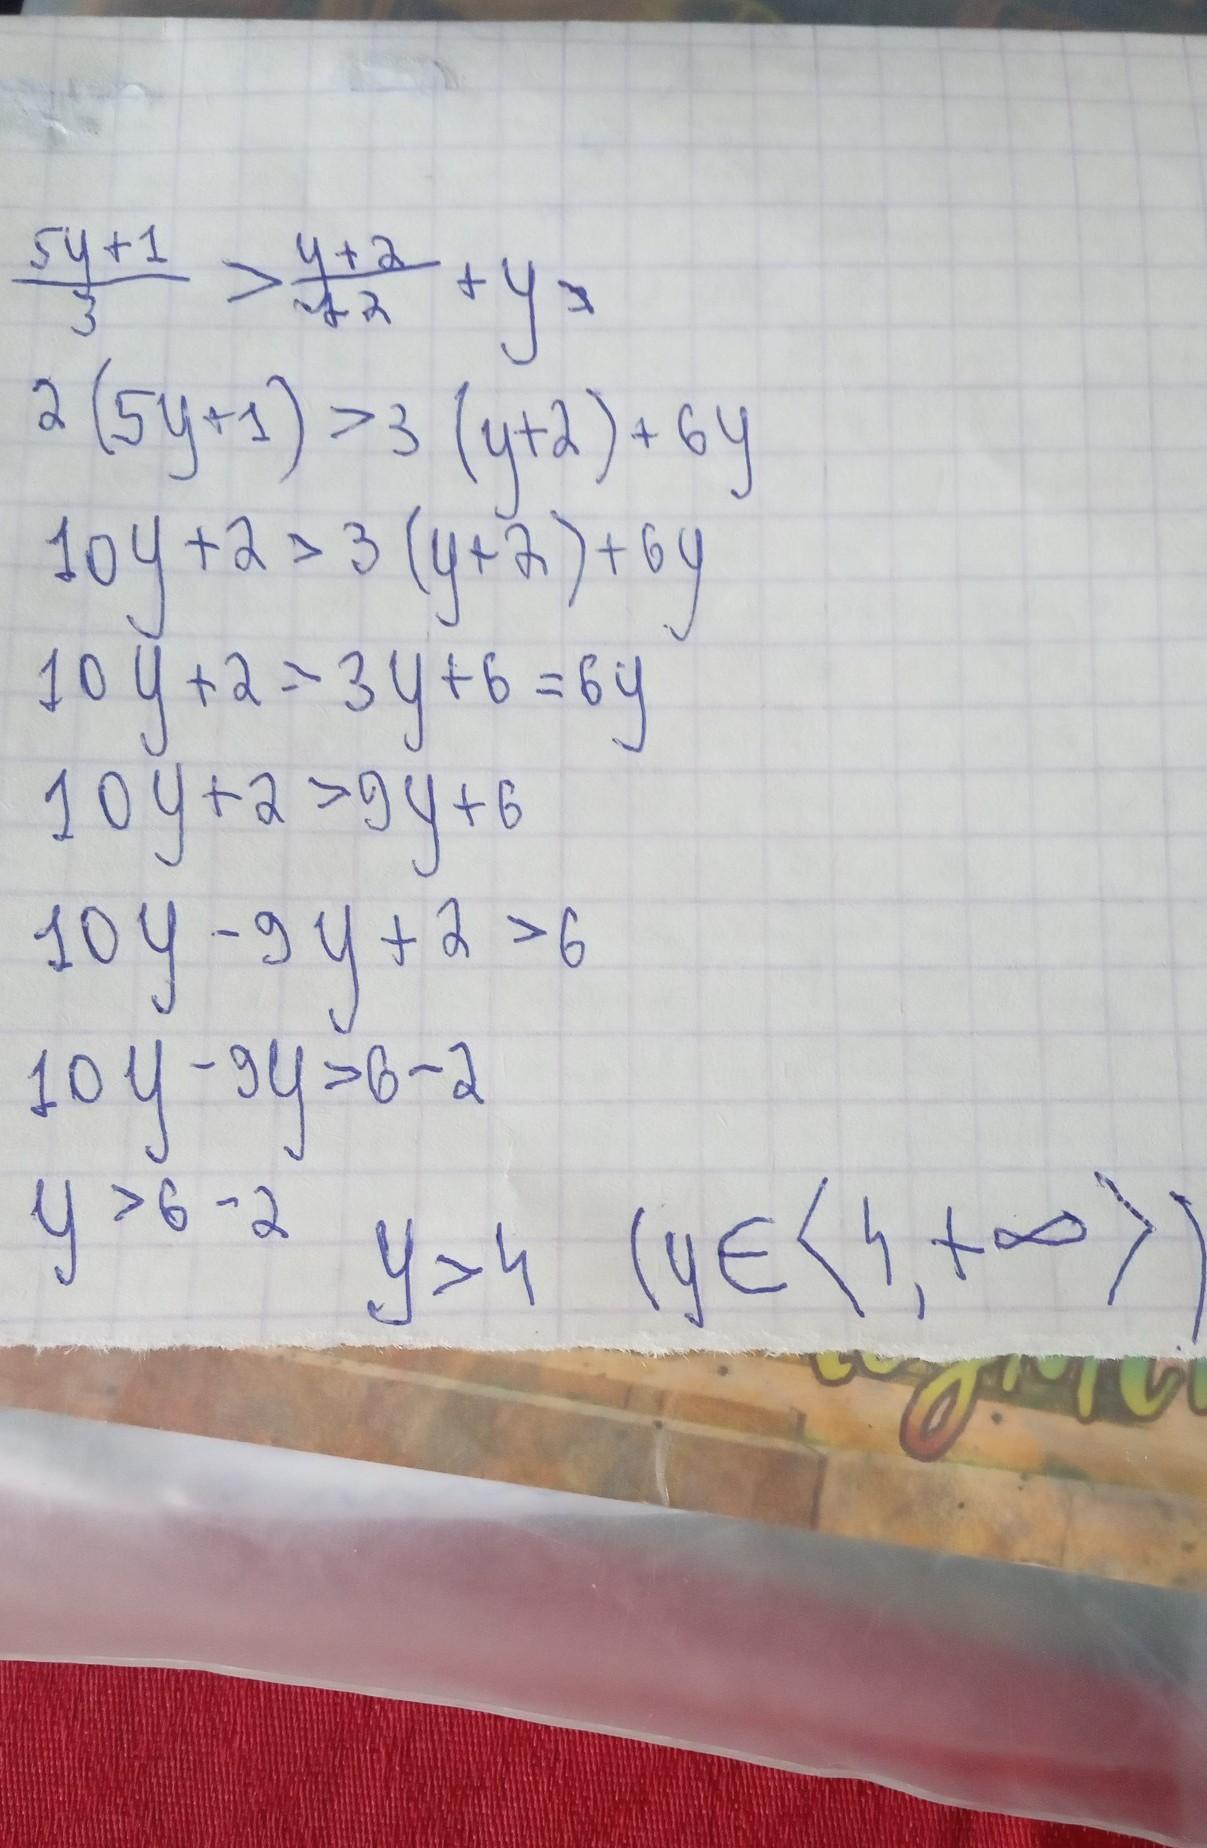 5y+1/3 > y+2/2 + y
2(5y+1)>3(y+2)+6y
10y+2>3(y+2)+6y
10y+2>3y+6=6y
10y+2>9y+6
10y-9y+2>6
10y-9y>6-2
y>6-2 y>4 (y∈⟨4,+∞⟩)